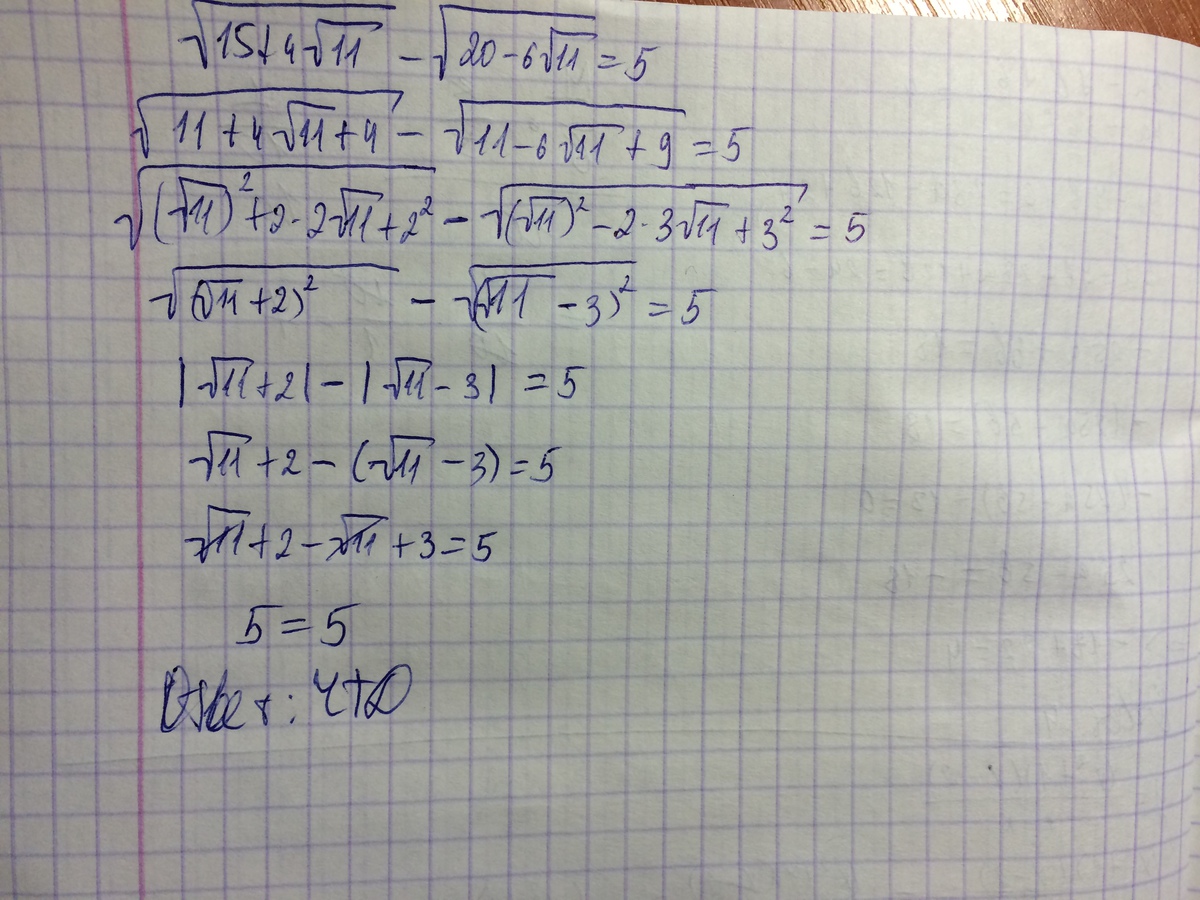 √(15+4√11) − √(20−6√11) = 5
√(11+4√11+4) − √(11−6√11+9) = 5
√((√11)²+2·2√11+2²) − √((√11)²−2·3√11+3²) = 5
√((√11+2)²) − √((√11−3)²) = 5
|√11+2| − |√11−3| = 5
√11+2−(√11−3)=5
√11+2−√11+3=5
5=5
Ответ: ЧТД